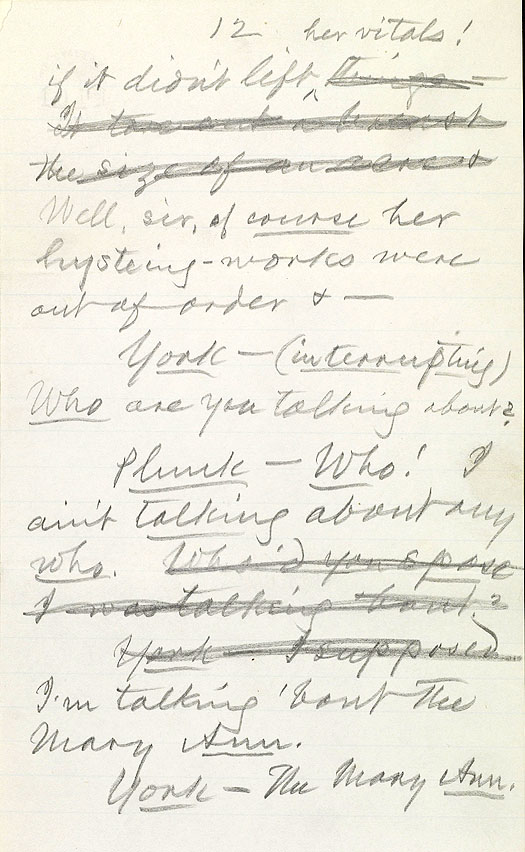 12 her vitals!
if it didn't left things —
It tore out a breast
the size of an acre &
Well, sir, of course her
hysteing-works were
out of order & —
York — (interrupting)
Who are you talking about?
Plunk — Who! I
ain't talking about any
who. Who'd you spose
I was talking 'bout?
York — I supposed
I'm talking 'bout the
Mary Ann.
York — The Mary Ann.